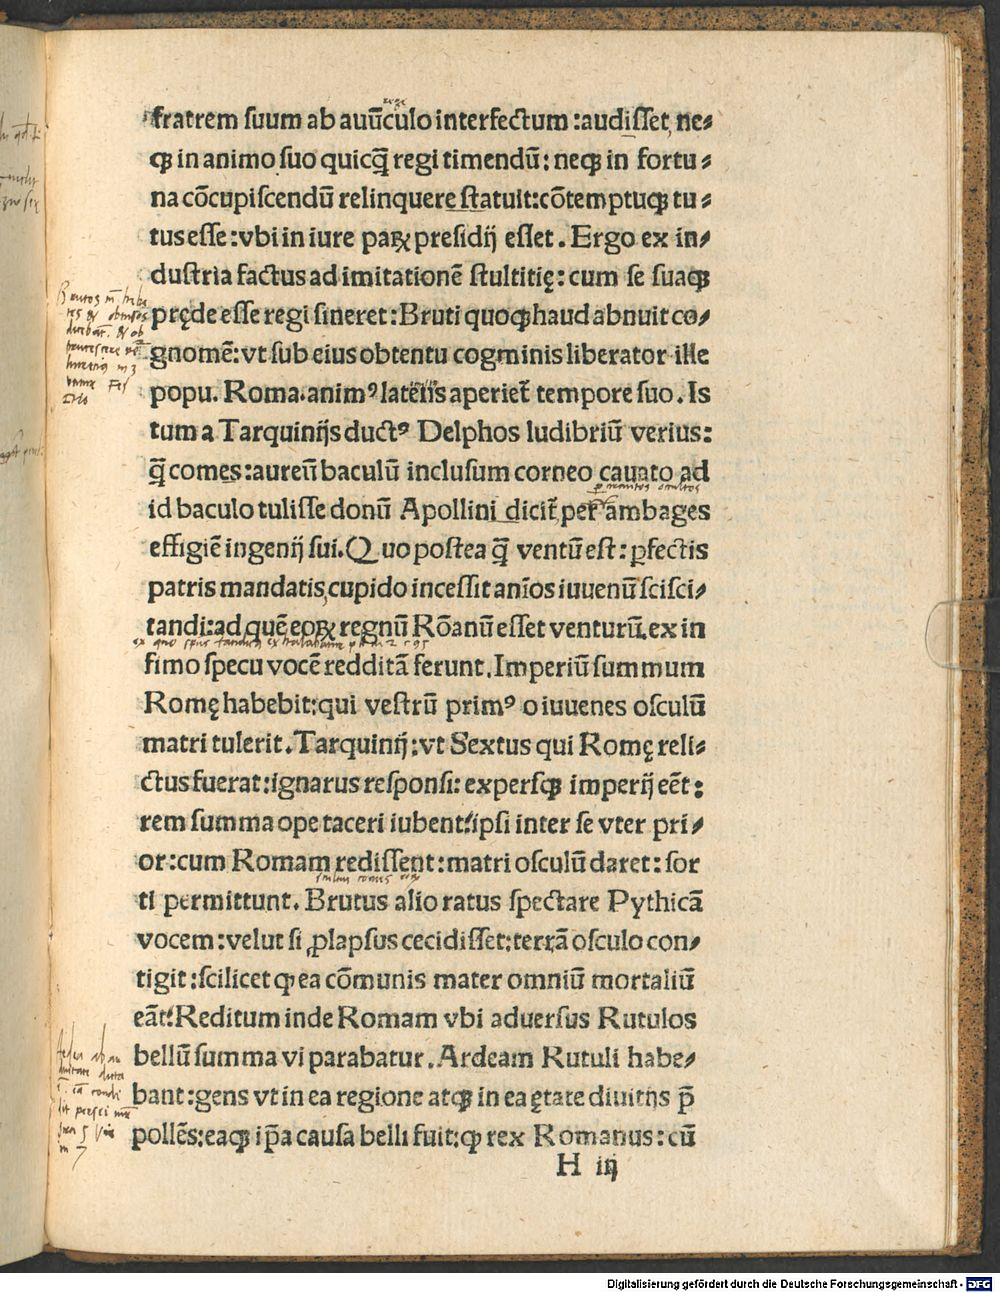 fratrem ſuum ab auūculo interfectum :audiſſet, ne⸗
qꝫ in animo ſuo quicq̄ regi timendū: neqꝫ in fortu⸗
na cōcupiſcendū relinquere ſtatuit:cōtemptuqꝫ tu⸗
tus eſſe :vbi in iure paꝝ preſidij eſſet . Ergo ex in⸗
duſtria factus ad imitationē ſtultitię: cum ſe ſuaqꝫ
pręde eſſe regi ſineret :Bruti quoqꝫ haud abnuit co⸗
gnomē: vt ſub eius obtentu cogminis liberator ille
popu. Roma.animꝰ latēns aperiet̄ tempore ſuo . Is
tum a Tarquinijs ductꝰ Delphos ludibriū verius:
q̄ comes :aureū baculū incluſum corneo cauato ad
id baculo tuliſſe donū Apollini dicit̄ per ambages
effigiē ingenij ſui. Quo poſtea q̄ ventū eſt : ꝑfectis
patris mandatis,cupido inceſſit anīos iuuenū ſciſci⸗
tandi:ad quē eoꝝ regnū Rōanū eſſet venturū.ex in
fimo ſpecu vocē redditā ferunt. Imperiū ſummum
Romę habebit:qui veſtrū primꝰ o iuuenes oſculū
matri tulerit.Tarquinij :vt Sextus qui Romę reli⸗
ctus fuerat :ignarus reſponſi: experſqꝫ imperij eēt :
rem ſumma ope taceri iubent:ipſi inter ſe vter pri⸗
or :cum Romam rediſſent :matri oſculū daret : ſor
ti permittunt. Brutus alio ratus ſpectare Pythicā
vocem :velut ſi ꝓlapſus cecidiſſet:terrā oſculo con⸗
tigit :ſcilicet ꝙ ea cōmunis mater omniū mortaliū
eāt:Reditum inde Romam vbi aduerſus Rutulos
bellū ſumma vi parabatur . Ardeam Rutuli habe⸗
bant :gens vt in ea regione atqꝫ in ea ętate diuitijs p̄
pollēs:eaqꝫ ip̄a cauſa belli fuit:ꝙ rex Romanus :cū
H iij
Digitalisierung gefördert durch die Deutsche Forschungsgemeinschaft - DFG